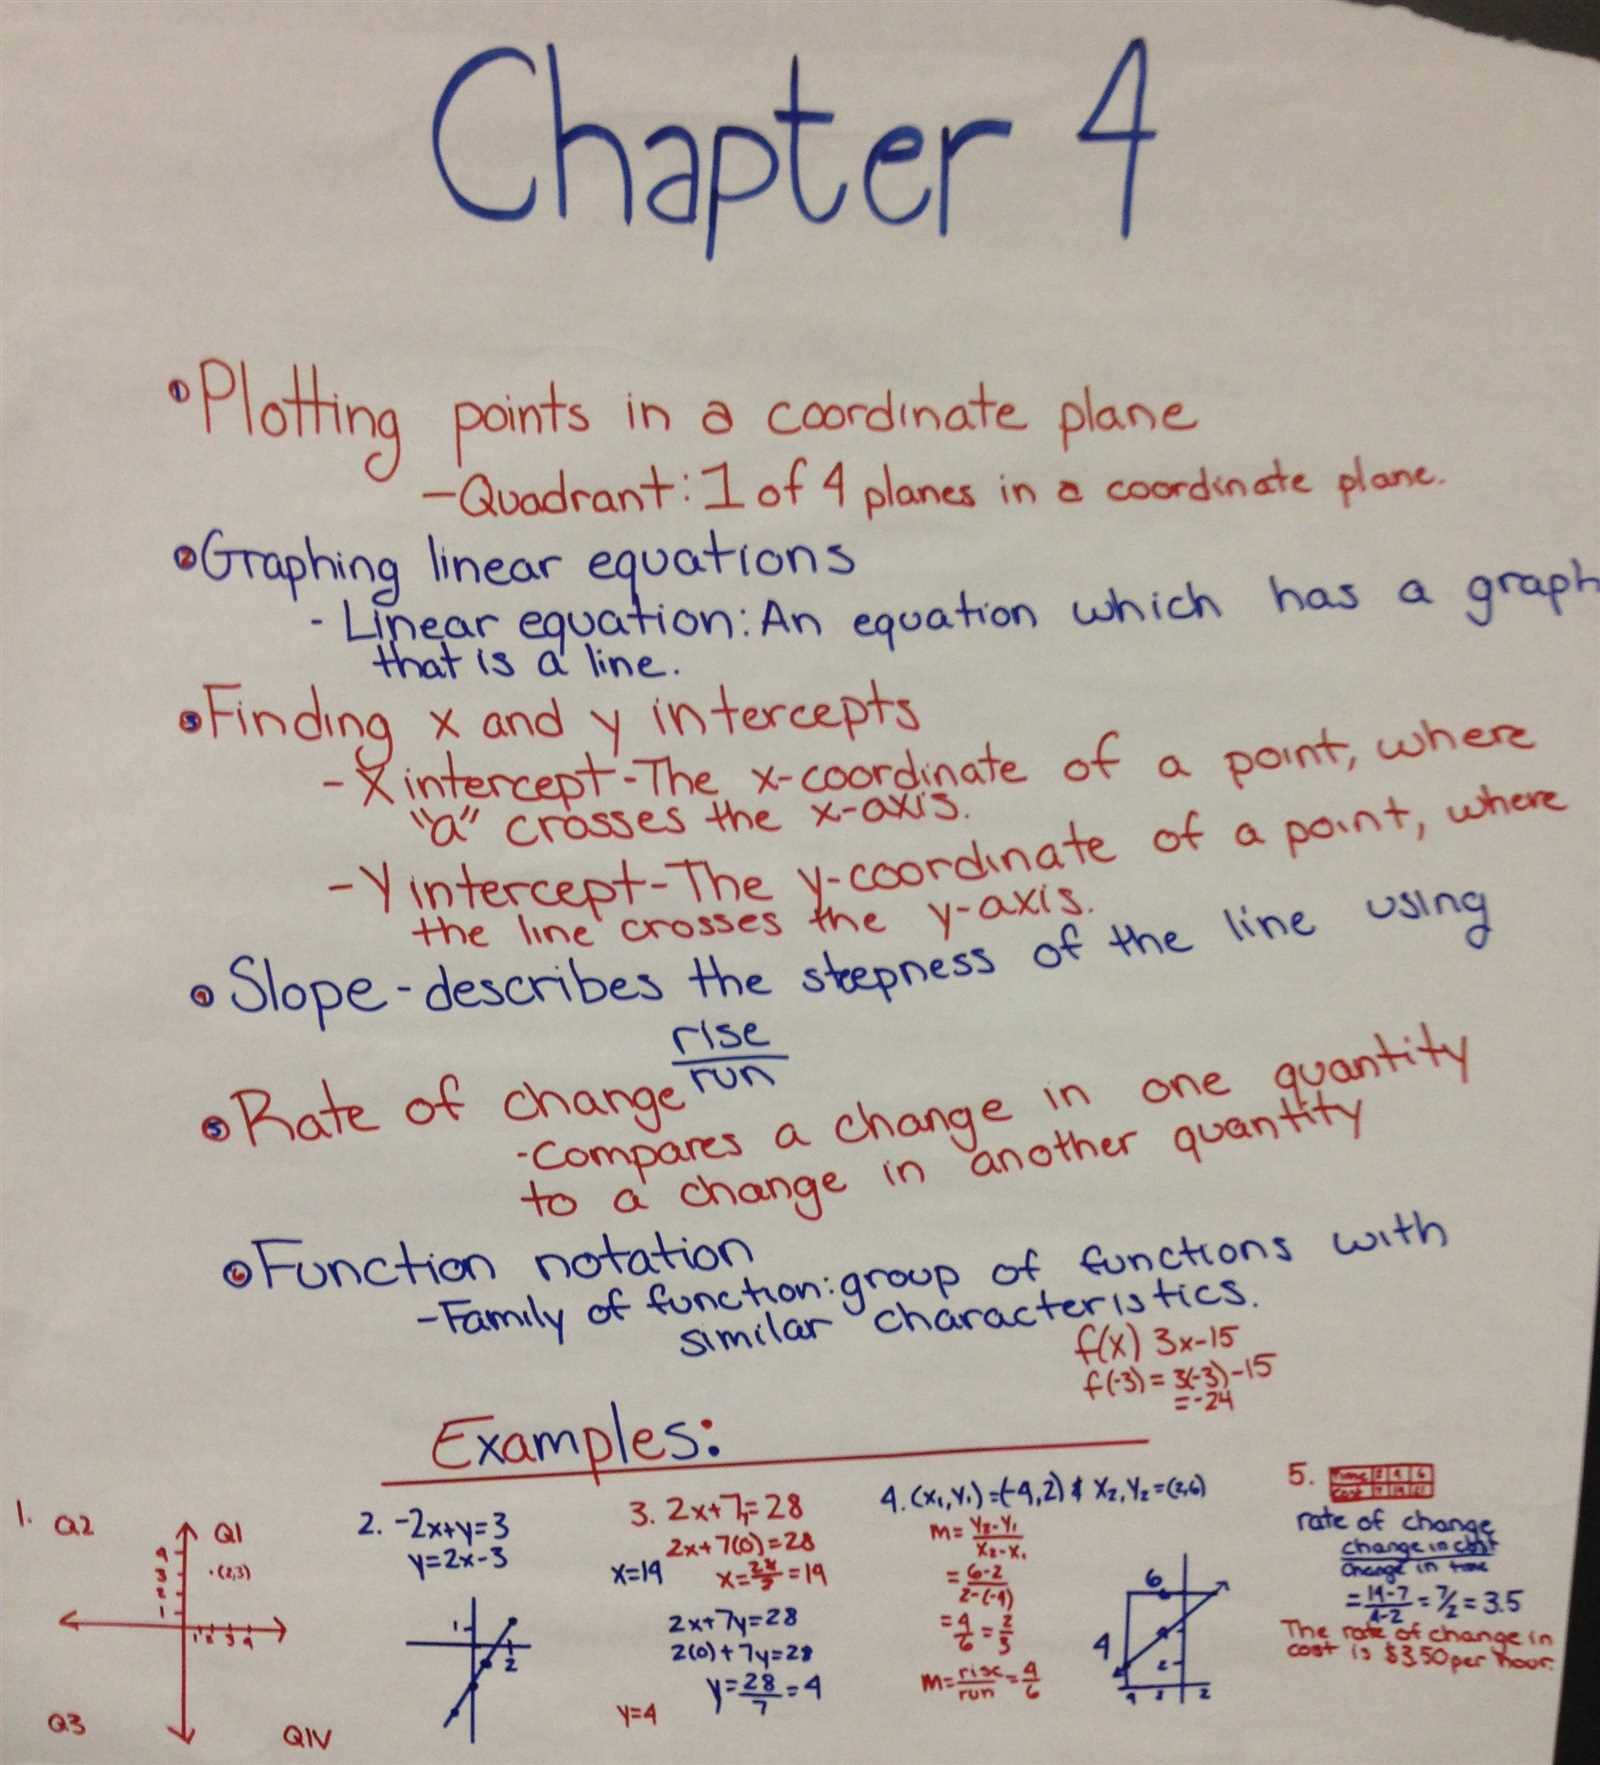 Chapter 4
① Plotting points in a coordinate plane
- Quadrant: 1 of 4 planes in a coordinate plane.
② Graphing linear equations
- Linear equation: An equation which has a graph
that is a line.
③ Finding x and y intercepts
- X intercept - The x-coordinate of a point, where
"a" crosses the x-axis.
- Y intercept - The y-coordinate of a point, where
the line crosses the y-axis.
④ Slope - describes the steepness of the line using
rise
run
⑤ Rate of change
- Compares a change in one quantity
to a change in another quantity
⑥ Function notation
- Family of function: group of functions with
similar characteristics.
f(x) 3x-15
f(-3) = 3(-3)-15
= -24
Examples:
1. Q2 Q1
4
3 (2,3)
2
1
1 2 3 4
Q3 QIV
2. -2x+y=3
y=2x-3
1
2
3. 2x+7y=28
2x+7(0)=28
x=14 x=28/2=14
2x+7y=28
2(0)+7y=28
y=28/7=4
y=4
4. (x₁,y₁)=(-4,2) & x₂,y₂=(2,6)
m=y₂-y₁/x₂-x₁
=6-2/2-(-4)
=4/6=2/3
m=rise/run=4/6
6
4
2
2
5. Time 2 4 6
Cost 7 14 21
rate of change
change in cost
change in time
=14-7/4-2=7/2=3.5
The rate of change in
cost is $3.50 per hour.